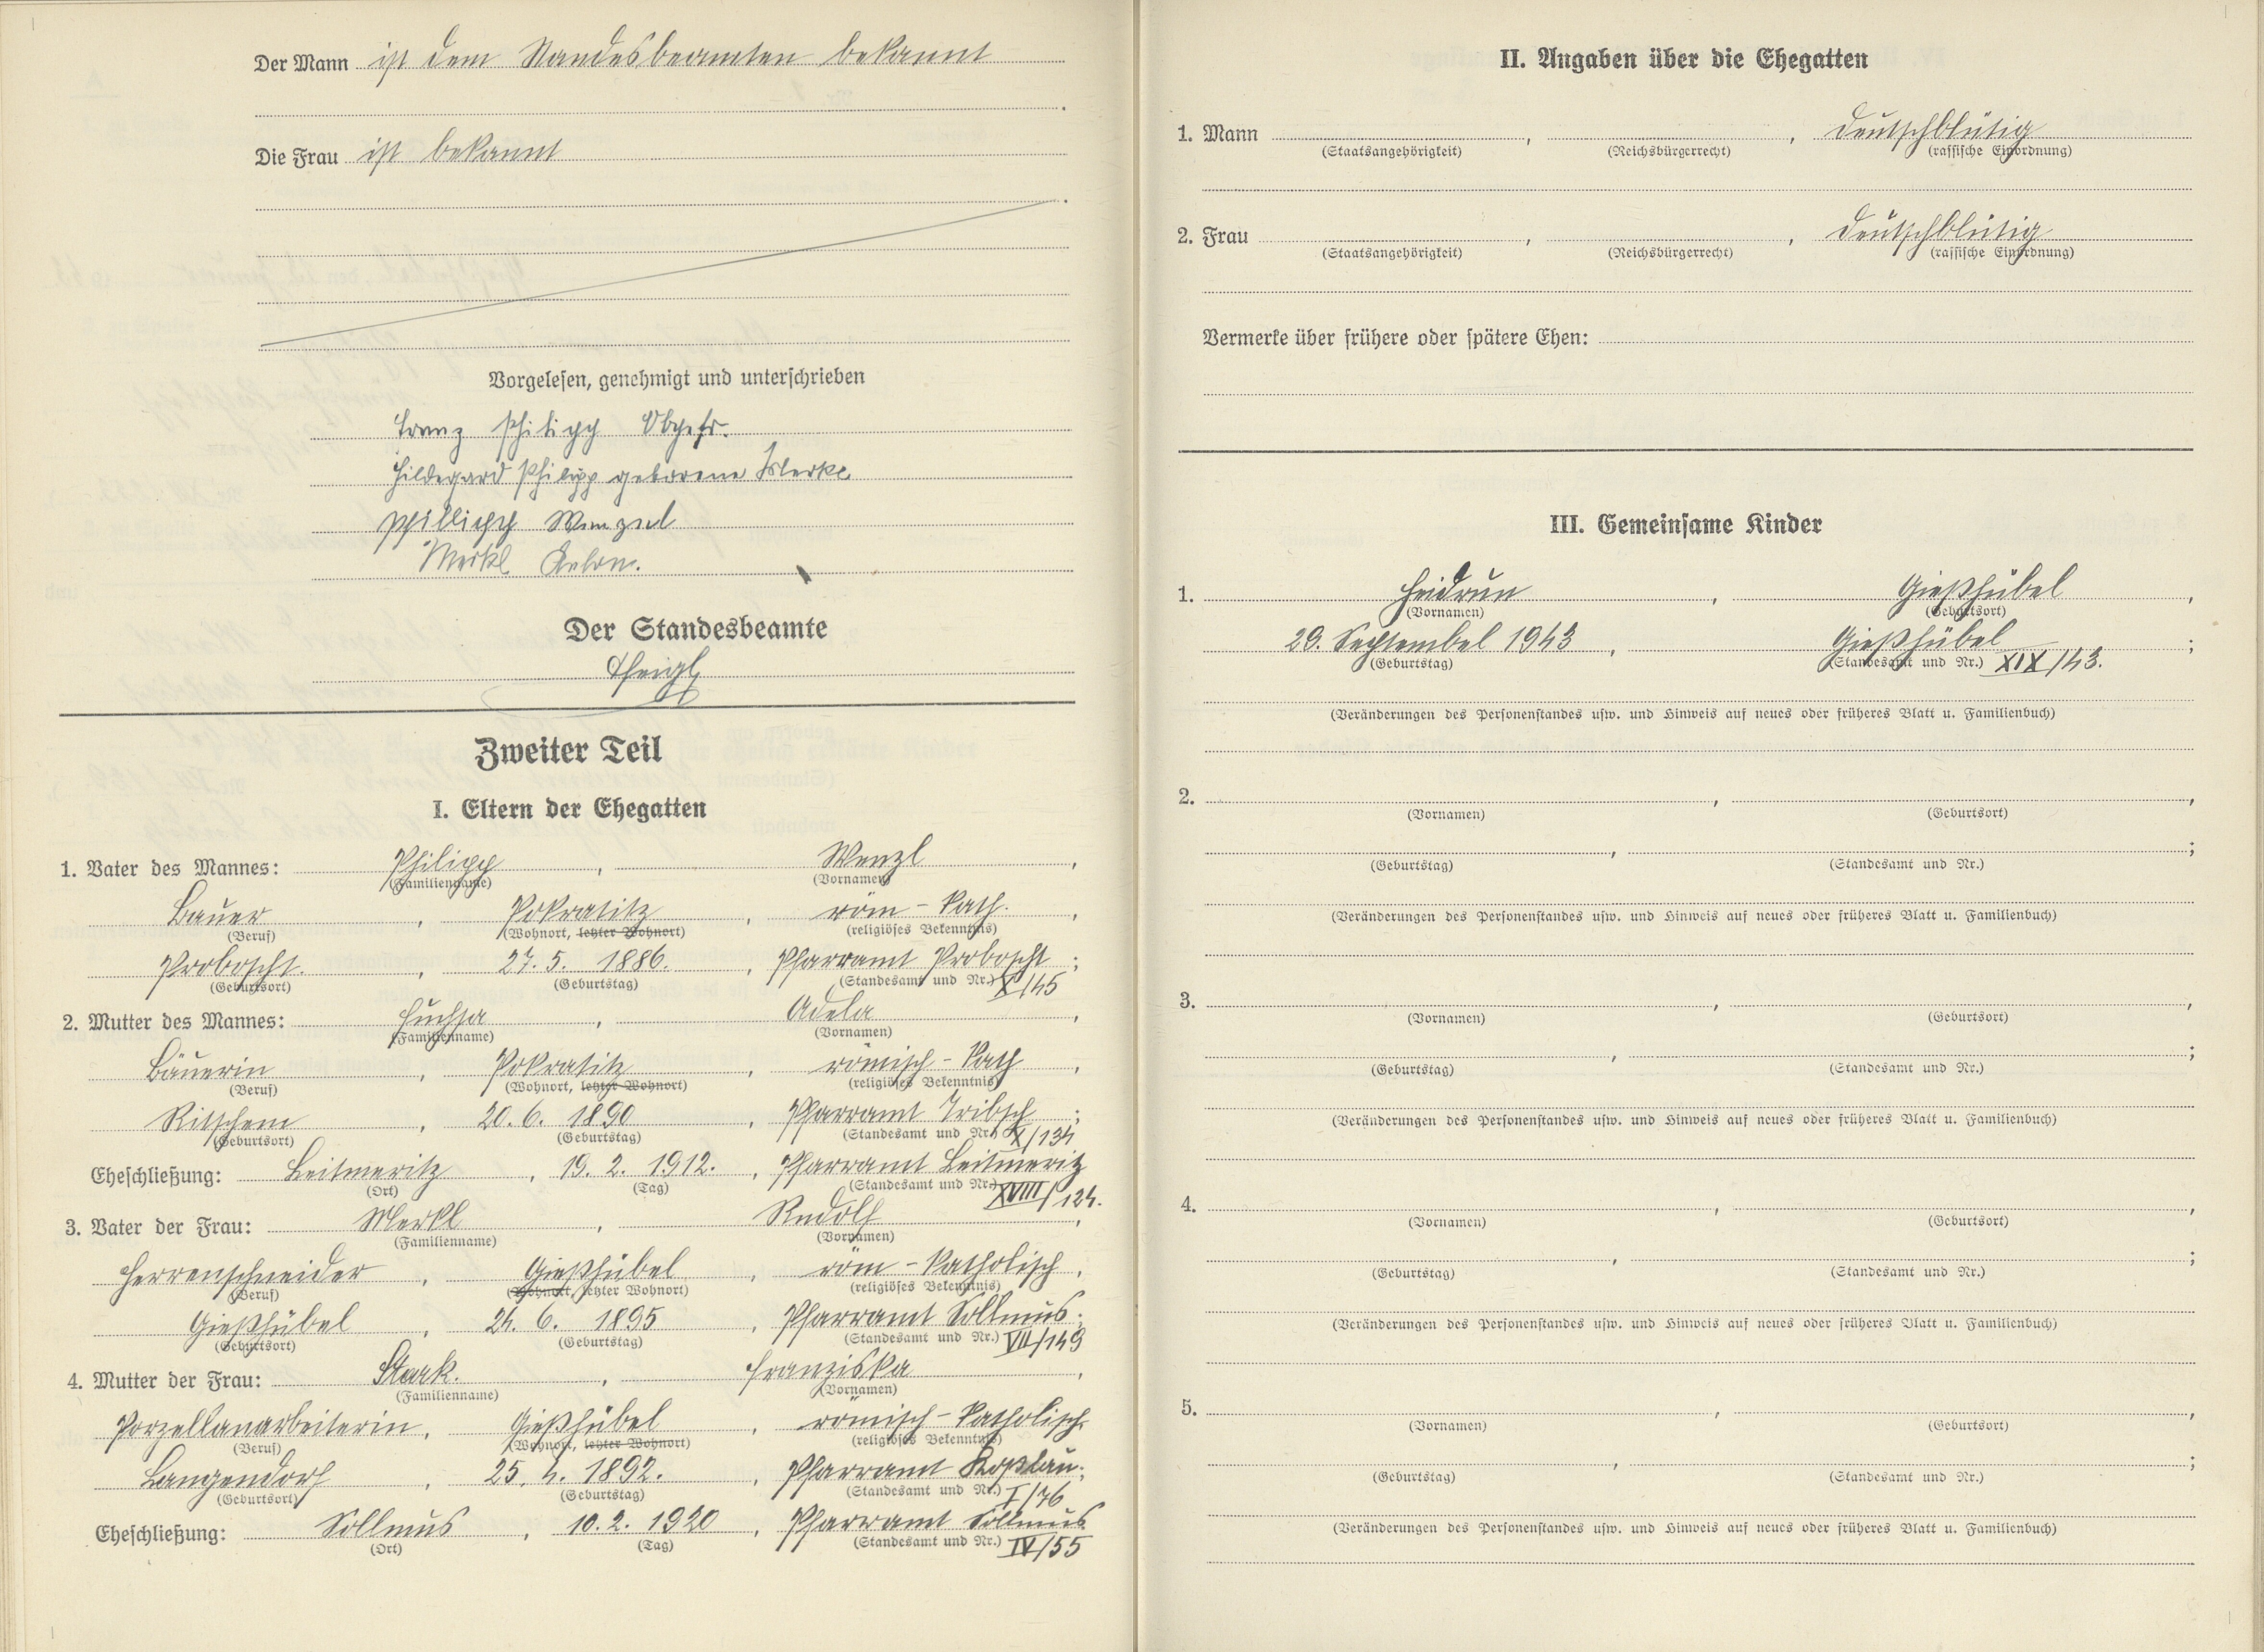 Der Mann ist dem Standesbeamten bekannt
Die Frau ist bekannt
Vorgelesen, genehmigt und unterschrieben
Franz Philipp Obgefr.
Hildegard Philipp geborene Merkl
Philipp Wenzel
Merkl Anton.
Der Standesbeamte
Zweiter Teil
I. Eltern der Ehegatten
1. Vater des Mannes: Philipp, Wenzl,
(Familienname) (Vornamen)
Bauer, Pokratitz, röm-kath.,
(Beruf) (Wohnort, letzter Wohnort) (religiöses Bekenntnis)
Proboscht., 27. 5. 1886., Pfarramt Proboscht;
(Geburtsort) (Geburtstag) (Standesamt und Nr.) X/45
2. Mutter des Mannes: Adela,
(Familienname) (Vornamen)
Bäuerin, Pokratitz, römisch-kath,
(Beruf) (Wohnort, letzter Wohnort) (religiöses Bekenntnis)
Ritschem, 20. 6. 1890, Pfarramt Tribsch;
(Geburtsort) (Geburtstag) (Standesamt und Nr.) X/134
Eheschließung: Leitmeritz, 19. 2. 1912., Pfarramt Leitmeritz
(Ort) (Tag) (Standesamt und Nr.) XVIII/124.
3. Vater der Frau: Merkl, Rudolf,
(Familienname) (Vornamen)
Herrenschneider, Gießhübel, röm-katholisch,
(Beruf) (Wohnort, letzter Wohnort) (religiöses Bekenntnis)
Gießhübel, 24. 6. 1895, Pfarramt Sollmus;
(Geburtsort) (Geburtstag) (Standesamt und Nr.) VII/149
4. Mutter der Frau: Stark., Franziska,
(Familienname) (Vornamen)
Porzellanarbeiterin, Gießhübel, römisch-katholisch
(Beruf) (Wohnort, letzter Wohnort) (religiöses Bekenntnis)
Langendorf, 25. 4. 1892., Pfarramt Koßlau;
(Geburtsort) (Geburtstag) (Standesamt und Nr.) I/76
Eheschließung: Sollmus, 10. 2. 1920, Pfarramt Sollmus
(Ort) (Tag) (Standesamt und Nr.) IV/55
II. Angaben über die Ehegatten
1. Mann , , deutschblütig
(Staatsangehörigkeit) (Reichsbürgerrecht) (rassische Einordnung)
2. Frau , , deutschblütig
(Staatsangehörigkeit) (Reichsbürgerrecht) (rassische Einordnung)
Vermerke über frühere oder spätere Ehen:
III. Gemeinsame Kinder
1. Heidrun, Gießhübel,
(Vornamen) (Geburtsort)
29. September 1943, Gießhübel;
(Geburtstag) (Standesamt und Nr.) XIX/43.
(Veränderungen des Personenstandes usw. und Hinweis auf neues oder früheres Blatt u. Familienbuch)
2. , ,
(Vornamen) (Geburtsort)
, ;
(Geburtstag) (Standesamt und Nr.)
(Veränderungen des Personenstandes usw. und Hinweis auf neues oder früheres Blatt u. Familienbuch)
3. , ,
(Vornamen) (Geburtsort)
, ;
(Geburtstag) (Standesamt und Nr.)
(Veränderungen des Personenstandes usw. und Hinweis auf neues oder früheres Blatt u. Familienbuch)
4. , ,
(Vornamen) (Geburtsort)
, ;
(Geburtstag) (Standesamt und Nr.)
(Veränderungen des Personenstandes usw. und Hinweis auf neues oder früheres Blatt u. Familienbuch)
5. , ,
(Vornamen) (Geburtsort)
, ;
(Geburtstag) (Standesamt und Nr.)
(Veränderungen des Personenstandes usw. und Hinweis auf neues oder früheres Blatt u. Familienbuch)